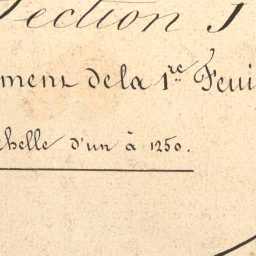 Section
ment de la 1re Feui
chelle d'un à 1250.